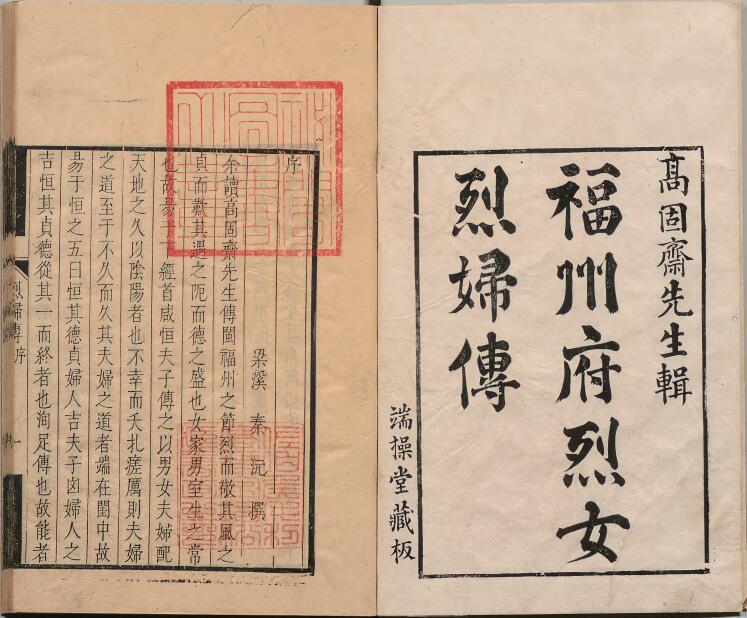 高固齋先生輯
福州府烈女
烈婦傳
端操堂藏板
序
梁溪 秦 沅 撰
余讀高固齋先生傳閩福州之節烈而敬其風之
貞而歎其遇之阨而德之盛也女家男室生之常
也故易下經首咸恒夫子傳之以男女夫婦配
天地之久以陰陽者也不幸而夭扎瘥厲則夫婦
之道至于不久而久其夫婦之道者端在閨中故
易于恒之五曰恒其德貞婦人吉夫子凶婦人之
吉恒其貞德從其一而終者也洵足傳也故能者
烈婦傳 序
一